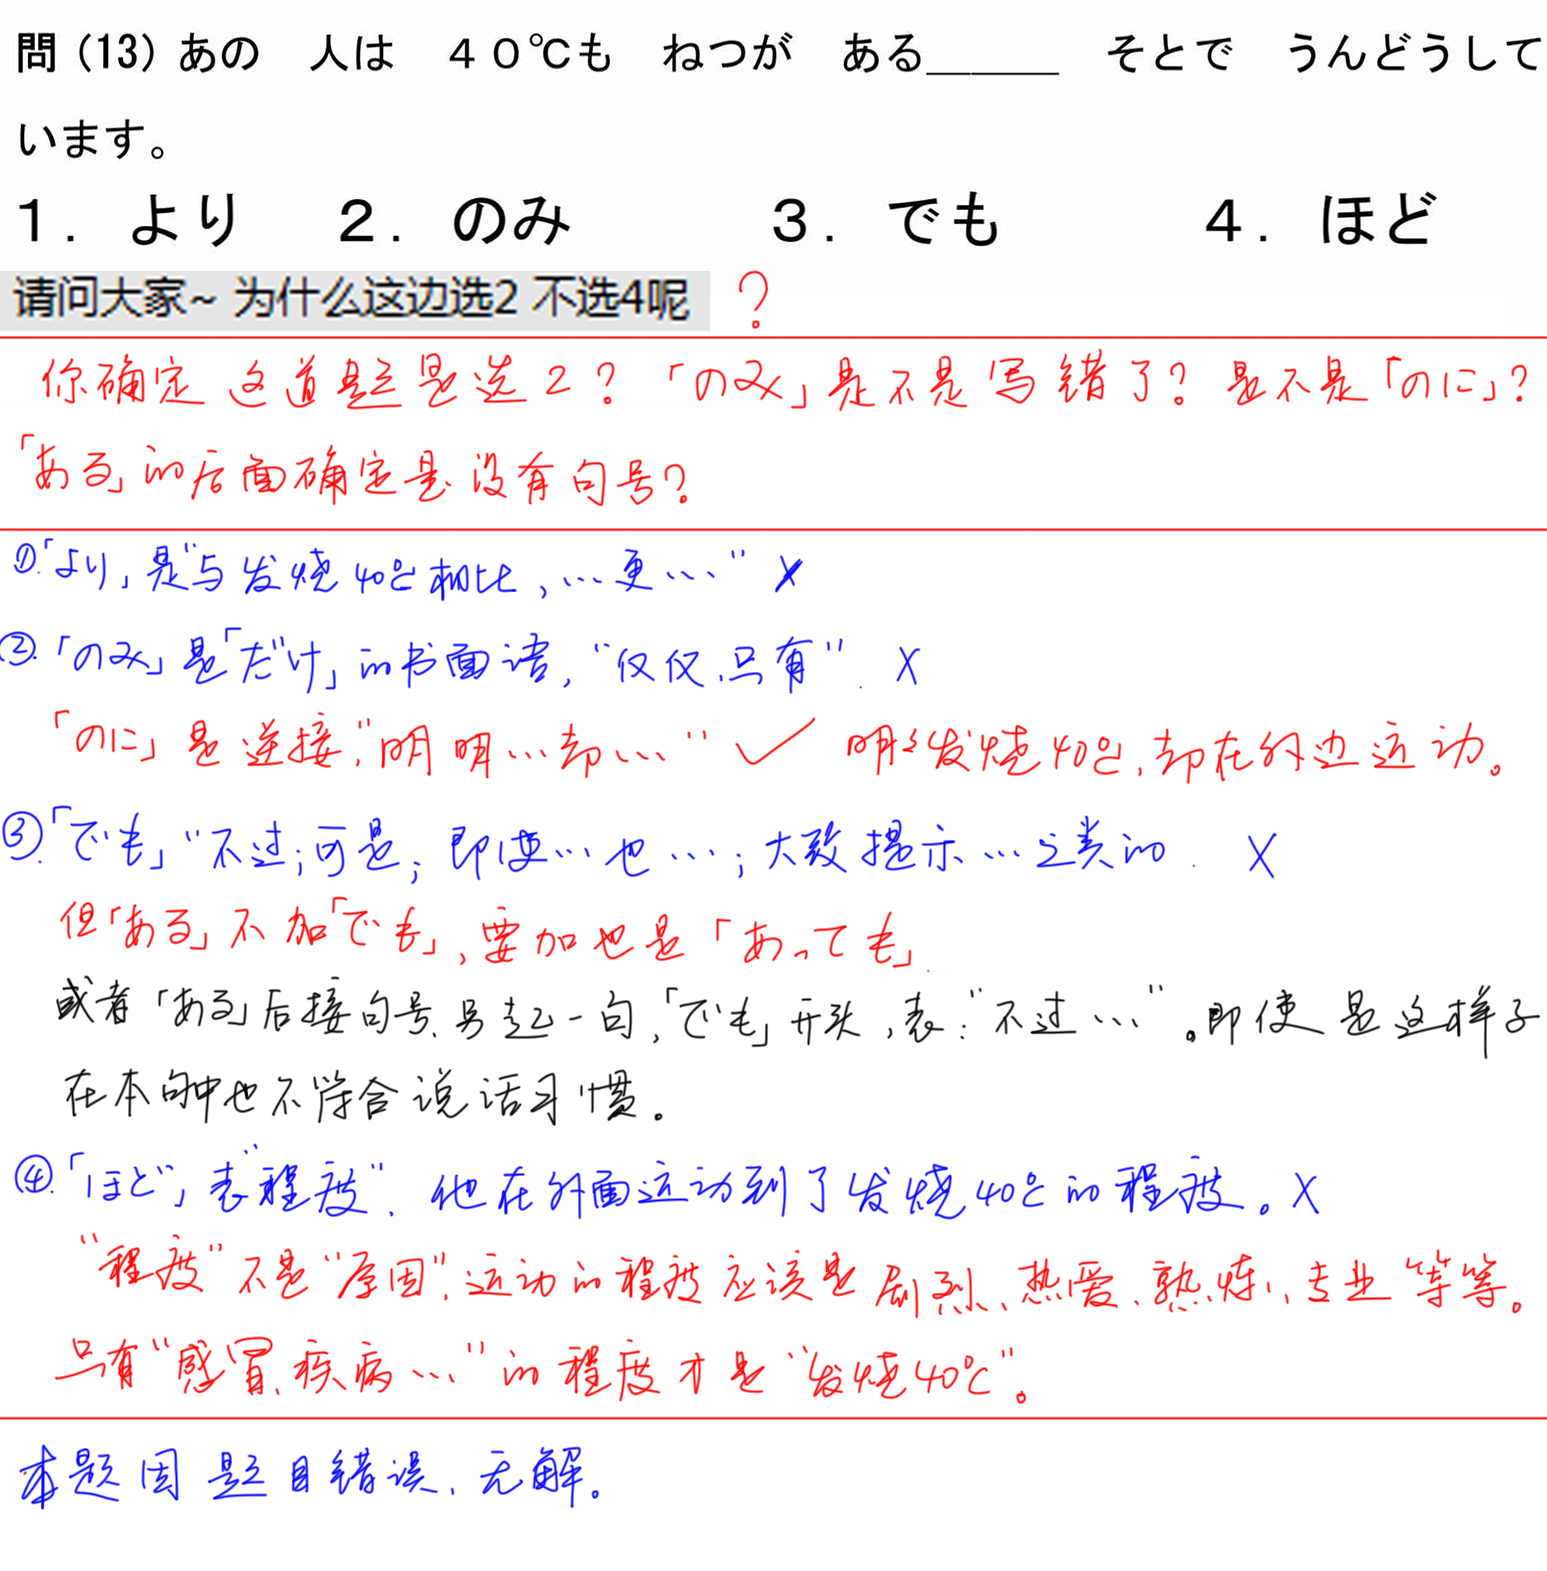 問（13）あの　人は　４０℃も　ねつが　ある＿＿＿　そとで　うんどうして
います。
１．より　２．のみ　３．でも　４．ほど
请问大家~ 为什么这边选2 不选4呢？
你确定这道题是选2？「のみ」是不是写错了？是不是「のに」？
「ある」的后面确定是没有句号？
①.「より」是“与发烧40℃相比，…更…” X
②.「のみ」是「だけ」的书面语，“仅仅、只有”. X
「のに」是逆接，“明明…却…” ✓ 明々发烧40℃，却在外边运动。
③.「でも」“不过；可是；即使…也…；大致提示…之类的. X
但「ある」不加「でも」，要加也是「あっても」.
或者「ある」后接句号、另起一句，「でも」开头，表：“不过…”。即使是这样子
在本句中也不符合说话习惯。
④.「ほど」表“程度”. 他在外面运动到了发烧40℃的程度。X
“程度”不是“原因”，运动的程度应该是剧烈、热爱、熟练、专业等等。
只有“感冒、疾病…”的程度才是“发烧40℃”。
本题因题目错误、无解。